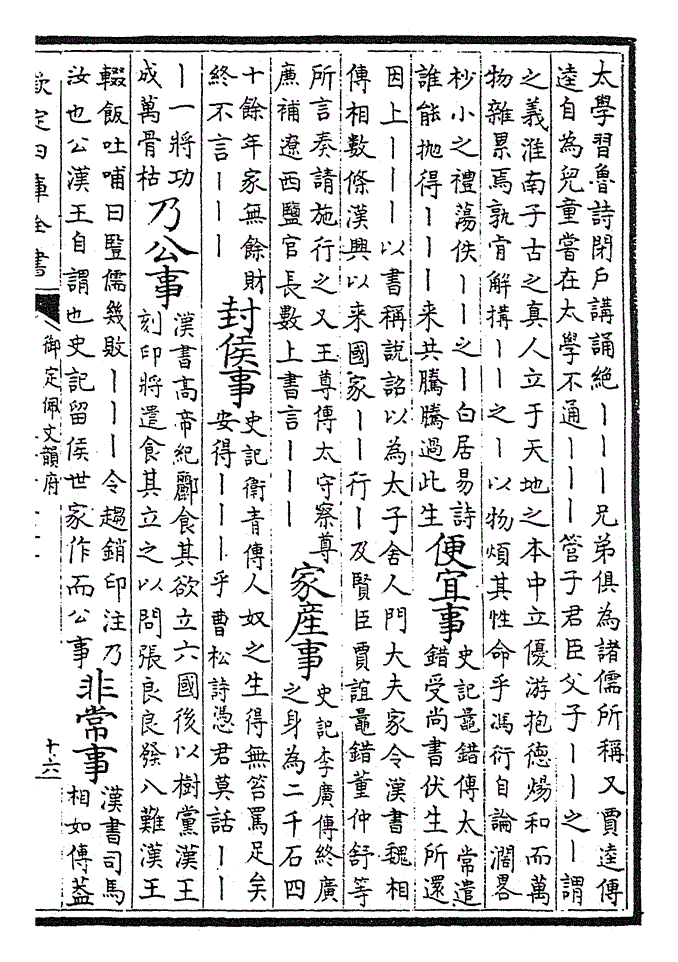 太學習魯詩閉戶講誦絶丨丨丨兄弟俱為諸儒所稱又賈逵傳
逵自為兒童嘗在太學不通丨丨丨管子君臣父子丨丨之丨謂
之義淮南子古之真人立于天地之本中立優游抱德煬和而萬
物雜累焉孰肯解搆丨丨之丨以物煩其性命乎馮衍自論濶畧
杪小之禮蕩佚丨丨之丨白居易詩
誰能抛得丨丨丨来共騰騰過此生
便宜事
史記鼂錯傳太常遣
錯受尚書伏生所還
因上丨丨丨以書稱說詔以為太子舍人門大夫家令漢書魏相
傳相數條漢興以來國家丨丨行丨及賢臣賈誼鼂錯董仲舒等
所言奏請施行之又王尊傳太守察尊
廉補遼西鹽官長數上書言丨丨丨
家産事
史記李廣傳終廣
之身為二千石四
十餘年家無餘財
終不言丨丨丨
封侯事
史記衛青傳人奴之生得無笞罵足矣
安得丨丨丨乎曹松詩憑君莫話丨丨
丨一將功
成萬骨枯
乃公事
漢書高帝紀酈食其欲立六國後以樹黨漢王
刻印將遣食其立之以問張良良發八難漢王
輟飯吐哺曰豎儒幾敗丨丨丨令趨銷印注乃
汝也公漢王自謂也史記留侯世家作而公事
非常事
漢書司馬
相如傳蓋
欽定四庫全書
御定佩文韻府
十六